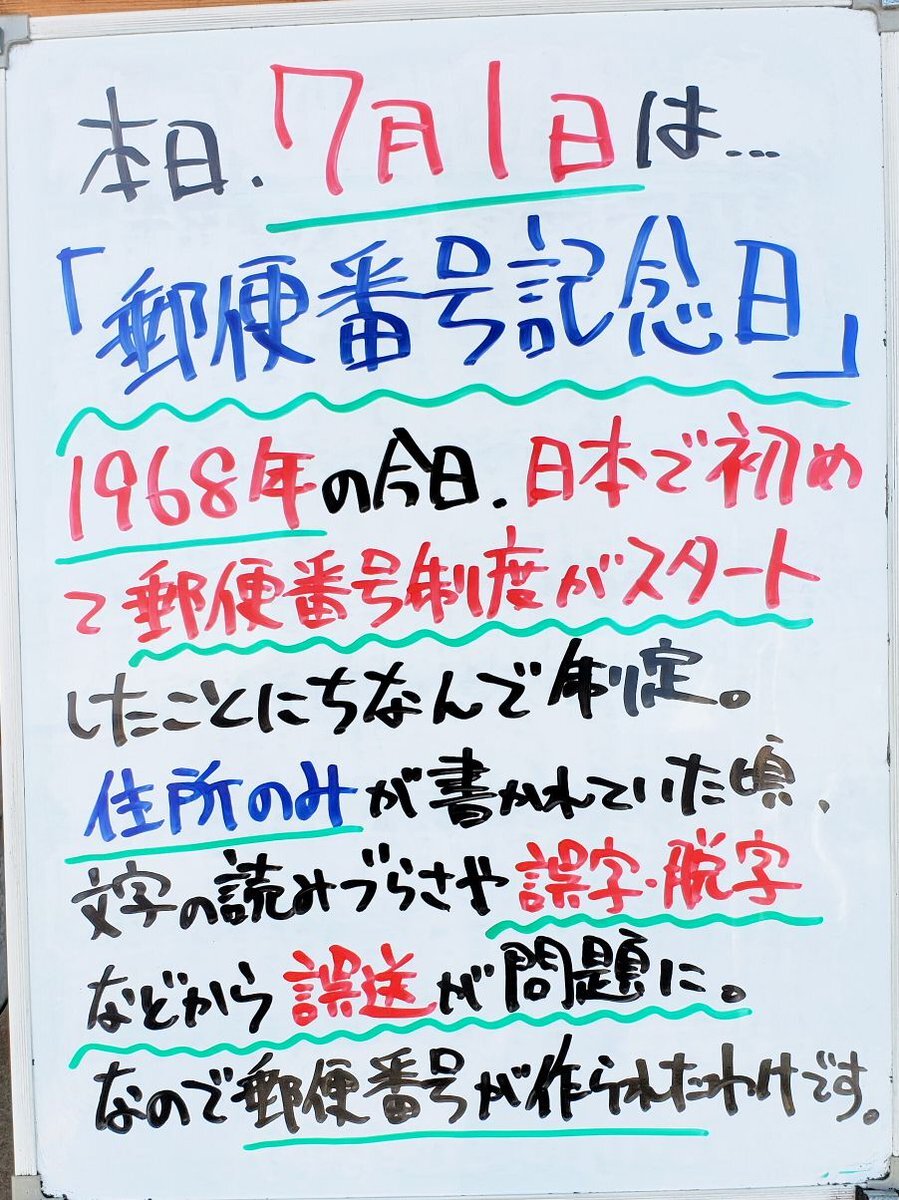 本日、7月1日は…
「郵便番号記念日」
1968年の今日、日本で初め
て郵便番号制度がスタート
したことにちなんで制定。
住所のみが書かれていた頃、
文字の読みづらさや誤字・脱字
などから誤送が問題に。
なので郵便番号が作られたわけです。